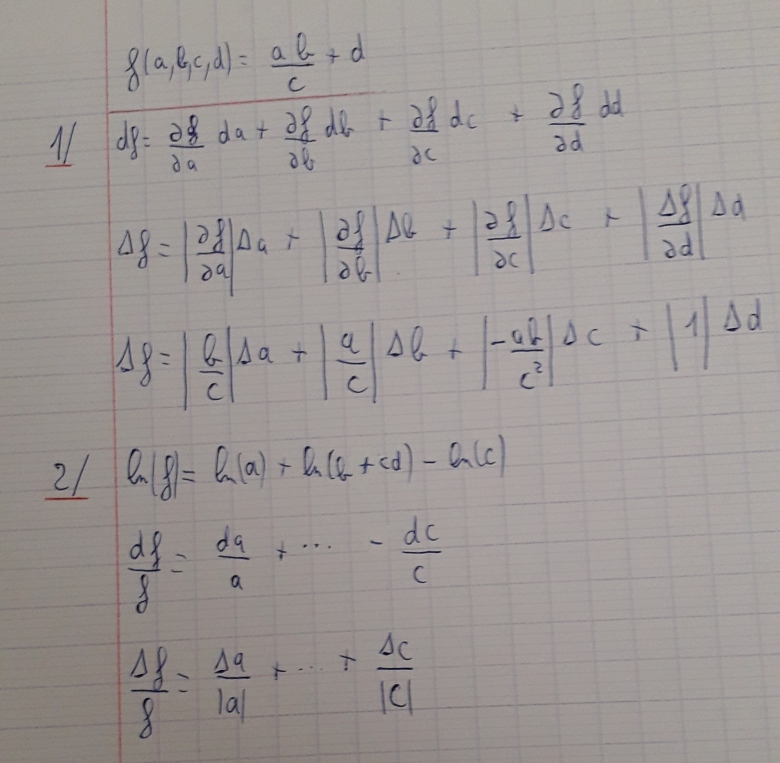 f(a,b,c,d) = ab/c + d
1/ df = ∂f/∂a da + ∂f/∂b db + ∂f/∂c dc + ∂f/∂d dd
Δf = |∂f/∂a| Δa + |∂f/∂b| Δb + |∂f/∂c| Δc + |Δf/∂d| Δd
Δf = |b/c| Δa + |a/c| Δb + |-ab/c²| Δc + |1| Δd
2/ ln(f) = ln(a) + ln(b + cd) - ln(c)
df/f = da/a + ... - dc/c
Δf/f = Δa/|a| + ... + Δc/|c|